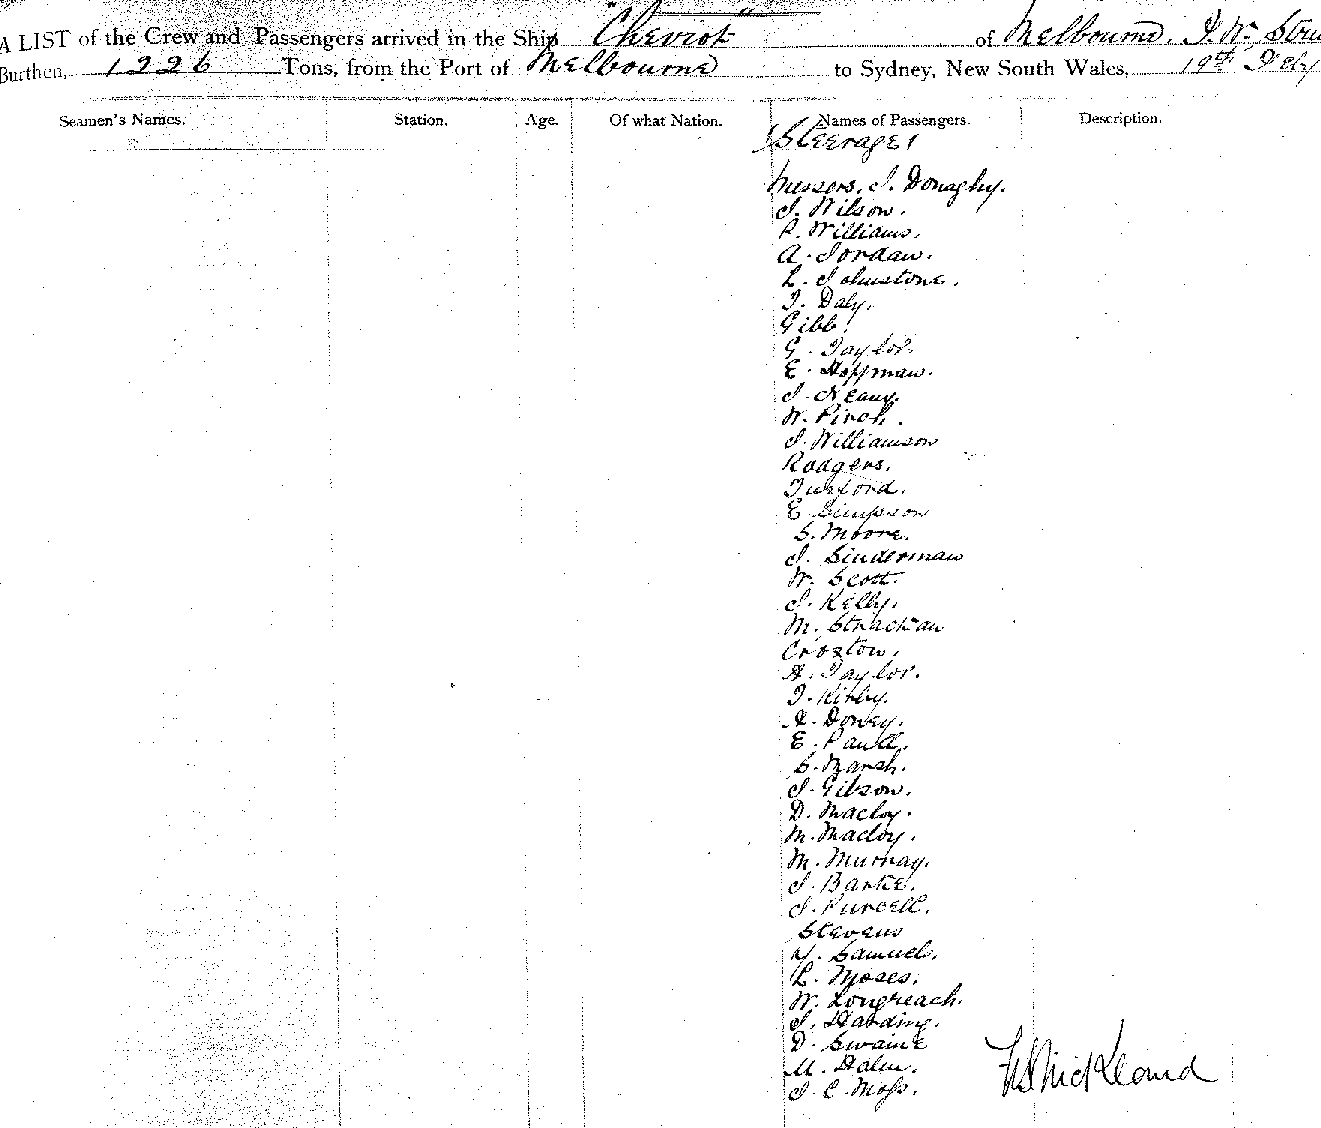 A LIST of the Crew and Passengers arrived in the Ship "Cheviot" of Melbourne. 
Burthen, 1226 Tons, from the Port of Melbourne to Sydney, New South Wales, 19th Feby
Seamen's Names. Station. Age. Of what Nation. Names of Passengers. Description.
Steerage
Messrs. J. Donaghy.
J. Wilson.
P. Williams.
A. Jordan.
L. Johnstone.
J. Daly.
Gibb.
G. Taylor.
E. Hoffman.
J. Neany.
W. Piroh.
J. Williamson
Rodgers.
Turford.
E Simpson
S. Moore.
J. Sinderman
W. Scott.
J. Kelly.
M. Strachan
Croxton.
A. Taylor.
J. Kirby.
A. Dowey.
E. Paull.
S. Marsh.
J. Gibson.
D. Macloy.
M. Macloy.
M. Murray.
J. Barke.
J. Purcell.
Stevens
Samuel.
L. Moses.
W. Longreach.
J. Harding.
D. Swaine
M.
J. C. Moss.